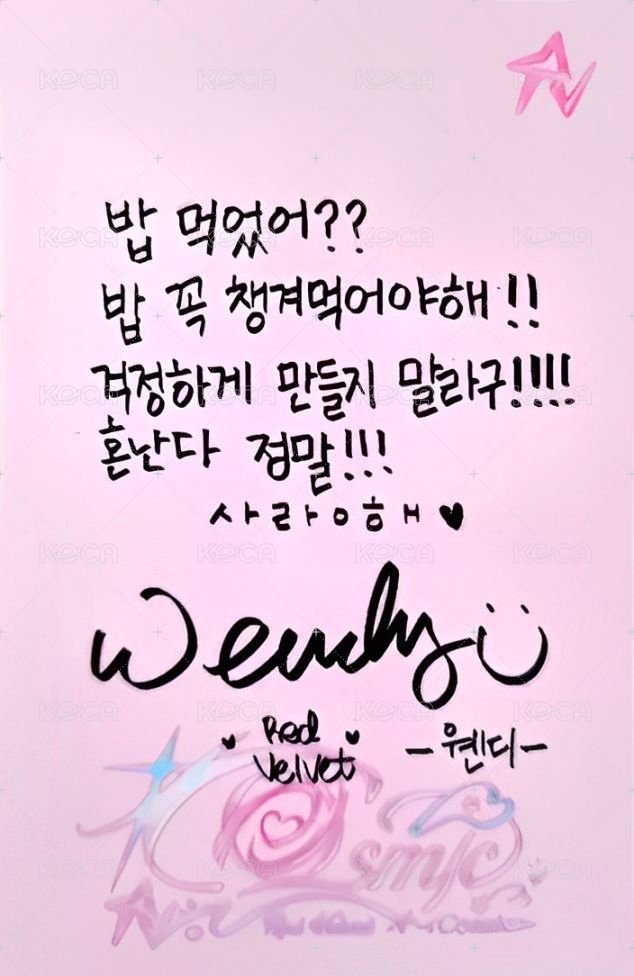 밥 먹었어??
밥 꼭 챙겨먹어야해!!
걱정하게 만들지 말라구!!!!
혼난다 정말!!!
사라ㅇ해♥
Wendy
Red Velvet
-웬디-
Cosmic
KOCA